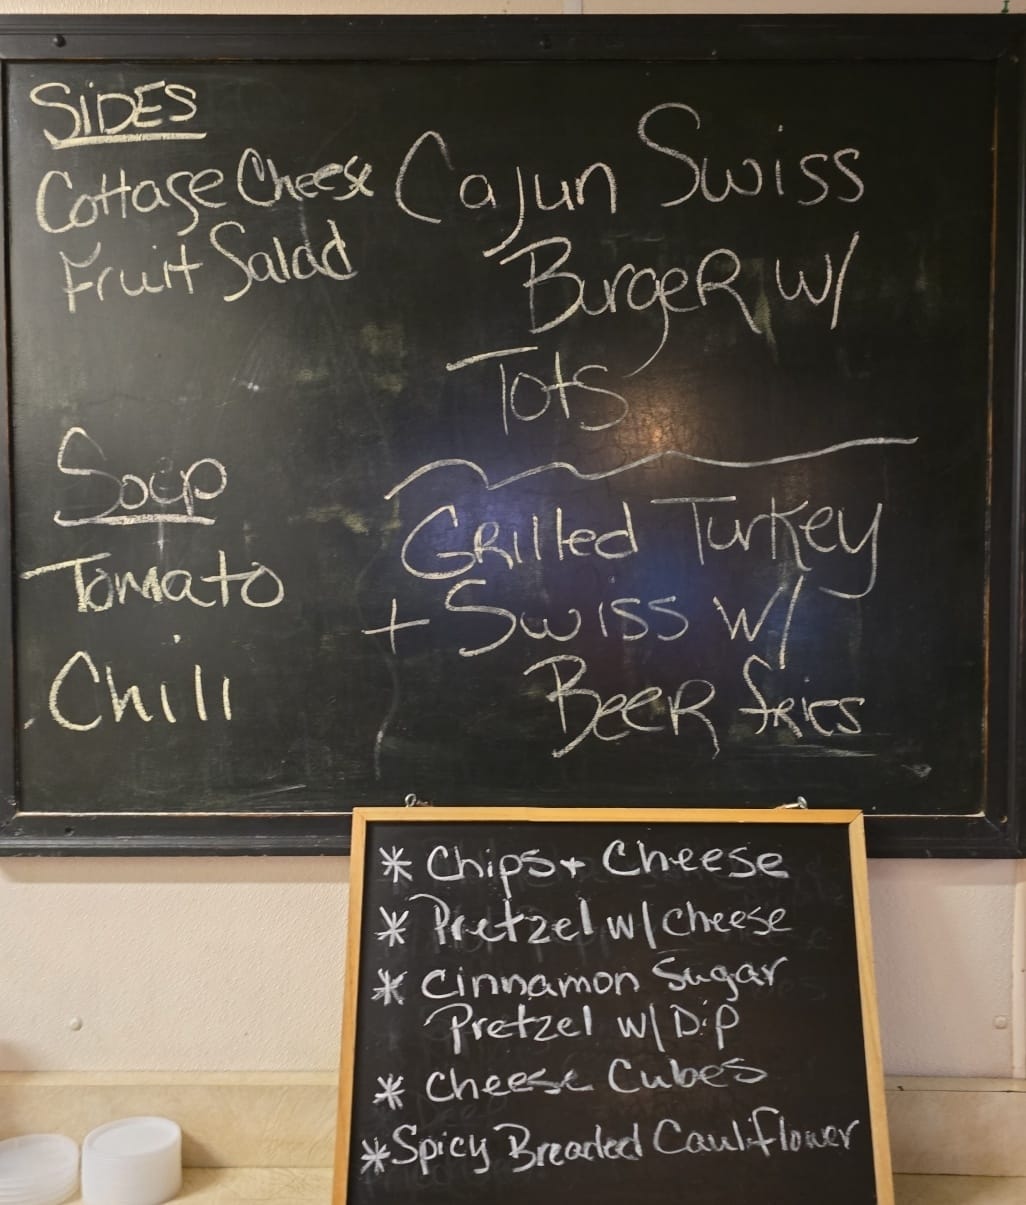 SiDES
Cottage Cheese
Fruit Salad
Soup
Tomato
Chili
Cajun Swiss
BurgeR w/
Tots
GRilled Turkey
+ Swiss w/
BeeR fries
* Chips + Cheese
* Pretzel w/ cheese
* Cinnamon Sugar
Pretzel w/ Dip
* Cheese Cubes
* Spicy Breaded Cauliflower